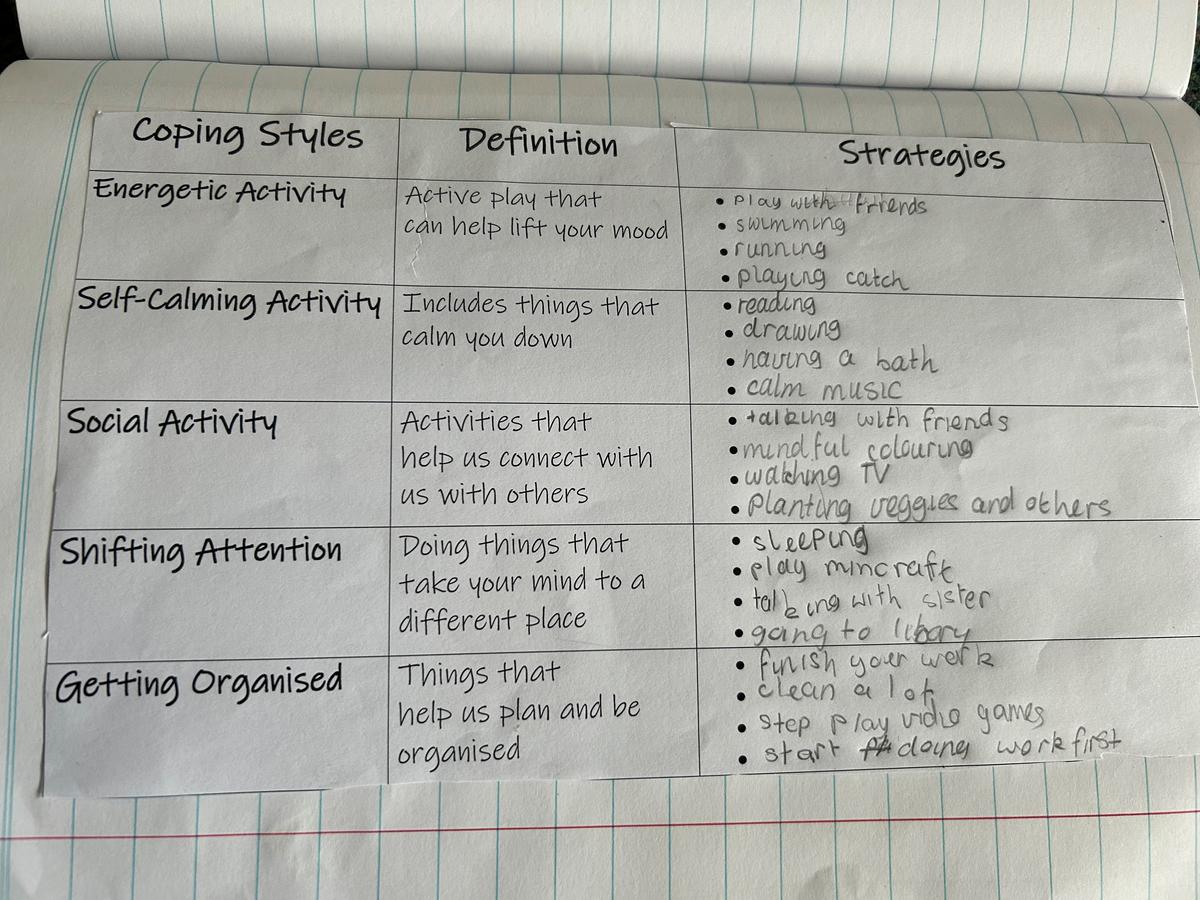 Coping Styles
Definition
Strategies
Energetic Activity
Active play that
can help lift your mood
• play with friends
• swimming
• running
• playing catch
Self-Calming Activity
Includes things that
calm you down
• reading
• drawing
• having a bath
• calm music
Social Activity
Activities that
help us connect with
us with others
• talking with friends
• mindful colouring
• watching TV
• Planting veggies and others
Shifting Attention
Doing things that
take your mind to a
different place
• sleeping
• play mincraft
• talking with sister
• going to libary
Getting Organised
Things that
help us plan and be
organised
• finish your work
• clean a lot
• step play vidio games
• start doing work first